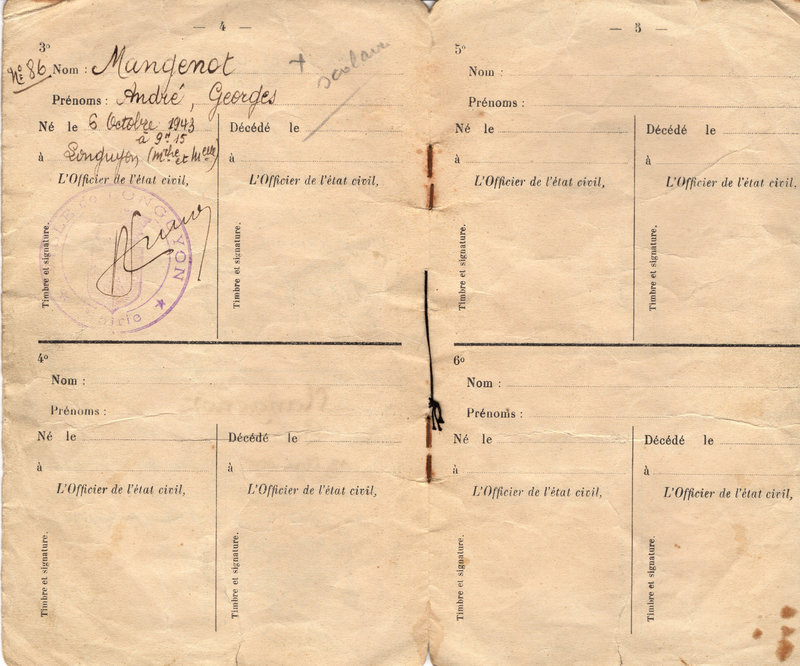 — 4 —
3º
Nº 86
Nom : Mangenot
+ scolaire
Prénoms : André, Georges
Né le 6 Octobre 1943
à 9h 15
Décédé le
à Longuyon (Mthe et Melle)
à
L'Officier de l'état civil,
L'Officier de l'état civil,
Timbre et signature.
VILLE de LONGUYON
Mairie
Timbre et signature.
4º
Nom :
Prénoms :
Né le
Décédé le
à
à
L'Officier de l'état civil,
L'Officier de l'état civil,
Timbre et signature.
Timbre et signature.
— 5 —
5º
Nom :
Prénoms :
Né le
Décédé le
à
à
L'Officier de l'état civil,
L'Officier de l'état civil,
Timbre et signature.
Timbre et signature.
6º
Nom :
Prénoms :
Né le
Décédé le
à
à
L'Officier de l'état civil,
L'Officier de l'état civil,
Timbre et signature.
Timbre et signature.